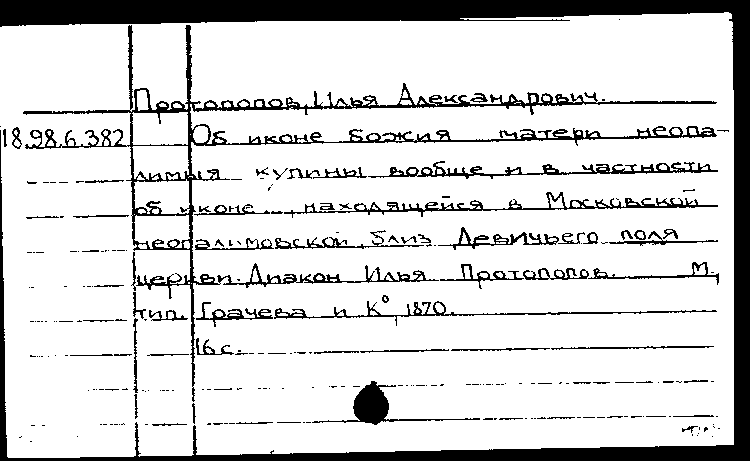 Протопопов, Илья Александрович.
18.98.6.382 Об иконе божия матери неопа-
лимыя купины вообще, и в частности
об иконе..., находящейся в Московской
неопалимовской, близ Девичьего поля
церкви. Диакон Илья Протопопов. М.,
тип. Грачева и К°, 1870.
16 с.